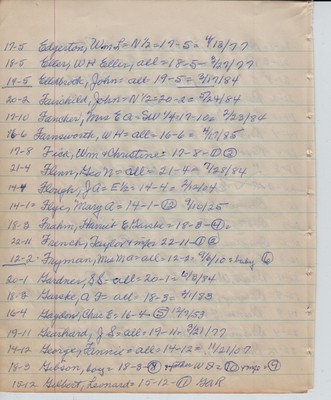 17-5 Edgerton, Wm L = N½ = 17-5 = 4/13/77
18-5 Eller, W H Eller, all = 18-5 = 3/27/77
19-5 Ellsbrook, John = all = 19-5 = 3/17/84
20-2 Fairchild, John = N½ = 20-2 = 5/24/84
17-10 Fancher, Mrs E A = SW¼ = 17-10 = 2/22/84
16-6 Farnsworth, W H = all = 16-6 = 4/17/85
17-8 Fick, Wm + Christine = 17-8 - ① ②
21-4 Flinn, Geo N = all - 21-4 = 7/28/84
14-4 Flough, J A = S½ = 14-4 = 2/12/04
14-1 = Flye, Mary A = 14-1 - ② 9/10/25
18-3 Frahm, = 18-3 = ④ =
22-11 French, Taylor + mps 22-11 = ① ②
12-2 = Fryman, Mrs M = all = 12-2 = 9/6/10 = baby ⑥
20-1 Gardner, S S = all = 20-1 = 2/8/84
18-3 Gareke, A F = all = 18-3 = 3/1/83
16-4 Gaydou, Chas E = 16-4 = ⑤
19-11 Gearhard, J S = all = 19-11 = 3/21/77
14-12 George, Fennie = all = 14-12 = 11/21/07
18-3 Gibson, boy = 18-3 = ⑧ W B = ⑩ + mps = ⑨
15-12 Gilbert, Leonard = 15-12 - ① G.A.R